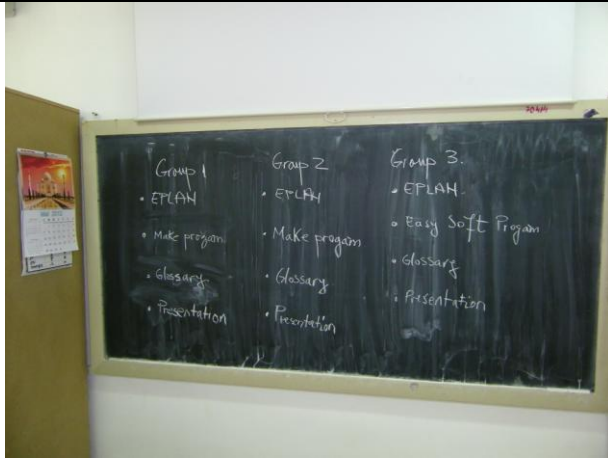 Group 1
• EPLAN
• Make progam
• Glossary
• Presentation
Group 2
• EPLAN
• Make progam
• Glossary
• Presentation
Group 3.
• EPLAN
• Easy Soft Progam
• Glossary
• Presentation